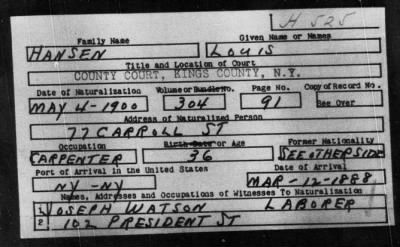 H 525
Family Name Given Name or Names
HANSEN LOUIS
Title and Location of Court
COUNTY COURT, KINGS COUNTY, N.Y.
Date of Naturalization Volume or Bundle No. Page No. Copy of Record No.
MAY 4-1900 304 91 See Over
Address of Naturalized Person
77 CARROLL ST
Occupation Birth Date or Age Former Nationality
CARPENTER 36 SEE OTHER SIDE
Port of Arrival in the United States Date of Arrival
NY-NY MAR-12-1888
Names, Addresses and Occupations of Witnesses To Naturalization
1 JOSEPH WATSON LABORER
2 102 PRESIDENT ST